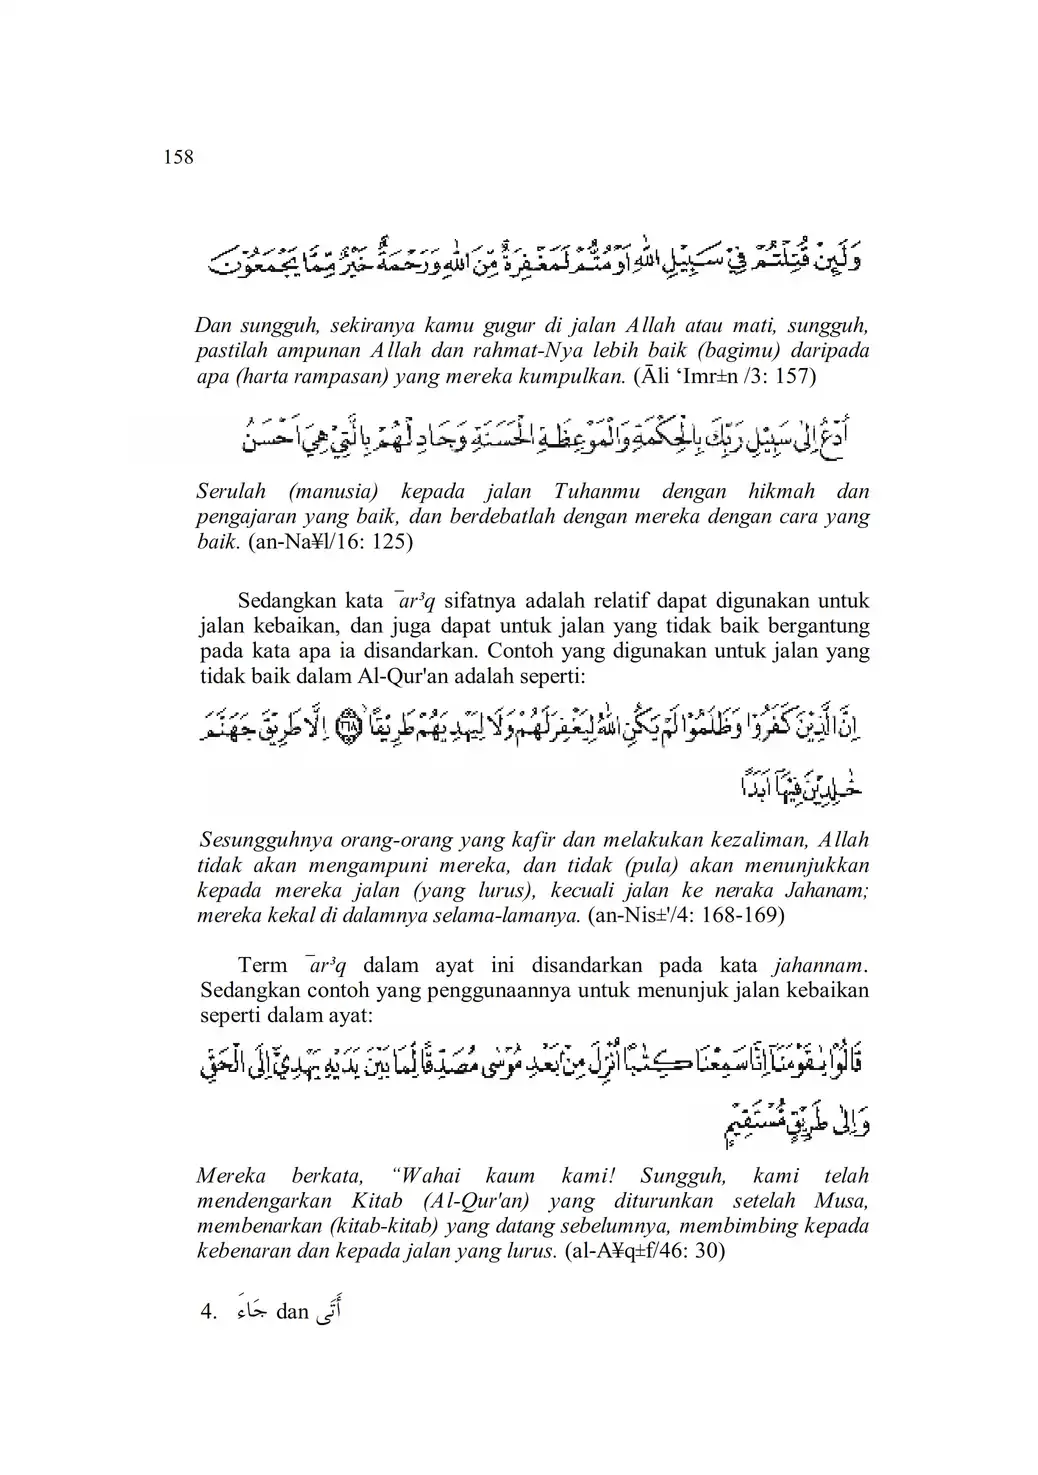 158
وَلَىِٕنْ قُتِلْتُمْ فِيْ سَبِيْلِ اللّٰهِ اَوْ مُتُّمْ لَمَغْفِرَةٌ مِّنَ اللّٰهِ وَرَحْمَةٌ خَيْرٌ مِّمَّا يَجْمَعُوْنَ
Dan sungguh, sekiranya kamu gugur di jalan Allah atau mati, sungguh,
pastilah ampunan Allah dan rahmat-Nya lebih baik (bagimu) daripada
apa (harta rampasan) yang mereka kumpulkan. (Āli ‘Imr±n /3: 157)
اُدْعُ اِلٰى سَبِيْلِ رَبِّكَ بِالْحِكْمَةِ وَالْمَوْعِظَةِ الْحَسَنَةِ وَجَادِلْهُمْ بِالَّتِيْ هِيَ اَحْسَنُ
Serulah (manusia) kepada jalan Tuhanmu dengan hikmah dan
pengajaran yang baik, dan berdebatlah dengan mereka dengan cara yang
baik. (an-Na¥l/16: 125)
Sedangkan kata ¯ar³q sifatnya adalah relatif dapat digunakan untuk
jalan kebaikan, dan juga dapat untuk jalan yang tidak baik bergantung
pada kata apa ia disandarkan. Contoh yang digunakan untuk jalan yang
tidak baik dalam Al-Qur'an adalah seperti:
اِنَّ الَّذِيْنَ كَفَرُوْا وَظَلَمُوْا لَمْ يَكُنِ اللّٰهُ لِيَغْفِرَ لَهُمْ وَلَا لِيَهْدِيَهُمْ طَرِيْقًا ۙ ١٦٨ اِلَّا طَرِيْقَ جَهَنَّمَ
خٰلِدِيْنَ فِيْهَآ اَبَدًا
Sesungguhnya orang-orang yang kafir dan melakukan kezaliman, Allah
tidak akan mengampuni mereka, dan tidak (pula) akan menunjukkan
kepada mereka jalan (yang lurus), kecuali jalan ke neraka Jahanam;
mereka kekal di dalamnya selama-lamanya. (an-Nis±'/4: 168-169)
Term ¯ar³q dalam ayat ini disandarkan pada kata jahannam.
Sedangkan contoh yang penggunaannya untuk menunjuk jalan kebaikan
seperti dalam ayat:
قَالُوْا يٰقَوْمَنَآ اِنَّا سَمِعْنَا كِتٰبًا اُنْزِلَ مِنْۢ بَعْدِ مُوْسٰى مُصَدِّقًا لِّمَا بَيْنَ يَدَيْهِ يَهْدِيْٓ اِلَى الْحَقِّ
وَاِلٰى طَرِيْقٍ مُّسْتَقِيْمٍ
Mereka berkata, “Wahai kaum kami! Sungguh, kami telah
mendengarkan Kitab (Al-Qur'an) yang diturunkan setelah Musa,
membenarkan (kitab-kitab) yang datang sebelumnya, membimbing kepada
kebenaran dan kepada jalan yang lurus. (al-A¥q±f/46: 30)
4. جَاءَ dan أَتَى